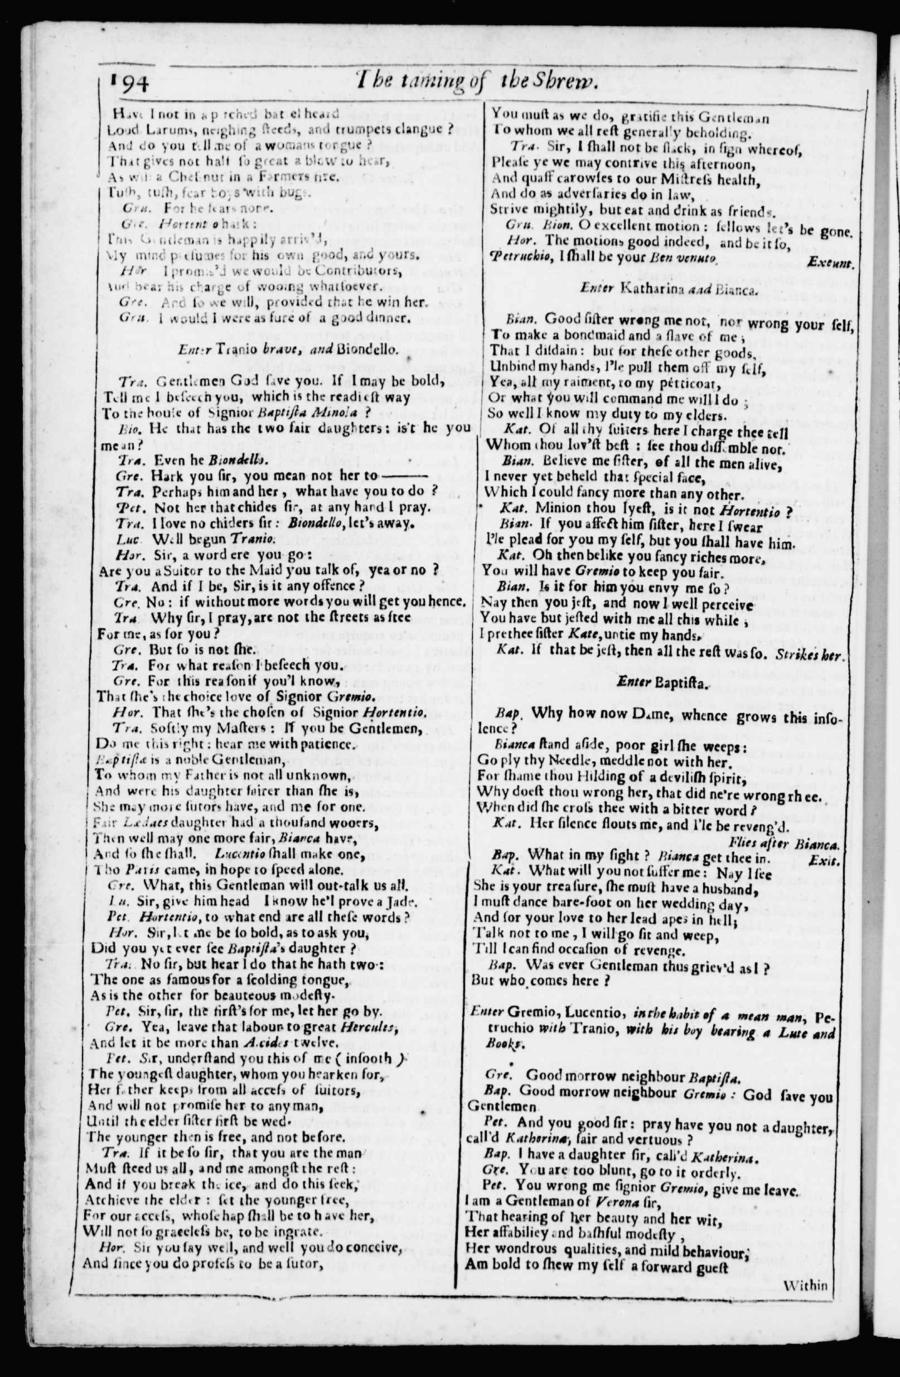 194
The taming of the Shrew.
Have I not in a p tched bat el heard
Loud Larums, neighing ſteeds, and trumpets clangue ?
And do you tell me of a womans tongue ?
That gives not half ſo great a blow to hear,
As will a Cheſnut in a Farmers fire.
Tuſh, tuſh, fear boys with bugs.
Gru. For he fears none.
Gre. Hortentio hark :
This Gentleman is happily arriv'd,
My mind preſumes for his own good, and yours.
Hor I promis'd we would be Contributors,
And bear his charge of wooing whatſoever.
Gre. And ſo we will, provided that he win her.
Gru. I would I were as ſure of a good dinner.
Enter Tranio brave, and Biondello.
Tra. Gentlemen God ſave you. If I may be bold,
Tell me I beſeech you, which is the readieſt way
To the houſe of Signior Baptiſta Minola ?
Bio. He that has the two fair daughters: is't he you
mean ?
Tra. Even he Biondello.
Gre. Hark you ſir, you mean not her to ———
Tra. Perhaps him and her , what have you to do ?
Pet. Not her that chides ſir, at any hand I pray.
Tra. I love no chiders ſir : Biondello, let's away.
Luc. Well begun Tranio.
Hor. Sir, a word ere you go :
Are you a Suitor to the Maid you talk of, yea or no ?
Tra. And if I be, Sir, is it any offence ?
Gre. No : if without more words you will get you hence.
Tra. Why ſir, I pray, are not the ſtreets as free
For me, as for you ?
Gre. But ſo is not ſhe.
Tra. For what reaſon I beſeech you.
Gre. For this reaſon if you'l know,
That ſhe's the choice love of Signior Gremio.
Hor. That ſhe's the choſen of Signior Hortentio.
Tra. Softly my Maſters : If you be Gentlemen,
Do me this right : hear me with patience.
Baptiſta is a noble Gentleman,
To whom my Father is not all unknown,
And were his daughter fairer than ſhe is,
She may more ſutors have, and me for one.
Fair Ledaes daughter had a thouſand wooers,
Then well may one more fair, Bianca have,
And ſo ſhe ſhall. Lucentio ſhall make one,
Tho Paris came, in hope to ſpeed alone.
Gre. What, this Gentleman will out-talk us all.
Lu. Sir, give him head I know he'l prove a Jade.
Pet. Hortentio, to what end are all theſe words ?
Hor. Sir, let me be ſo bold, as to ask you,
Did you yet ever ſee Baptiſta's daughter ?
Tra. No ſir, but hear I do that he hath two :
The one as famous for a ſcolding tongue,
As is the other for beauteous modeſty.
Pet. Sir, ſir, the firſt's for me, let her go by.
Gre. Yea, leave that labour to great Hercules,
And let it be more than Alcides twelve.
Pet. Sir, underſtand you this of me ( inſooth )
The youngeſt daughter, whom you hearken for,
Her father keeps from all acceſs of ſuitors,
And will not promiſe her to any man,
Until the elder ſiſter firſt be wed.
The younger then is free, and not before.
Tra. If it be ſo ſir, that you are the man
Muſt ſteed us all, and me amongſt the reſt :
And if you break the ice, and do this ſeek,
Atchieve the elder : ſet the younger free,
For our acceſs, whoſe hap ſhall be to have her,
Will not ſo graceleſs be, to be ingrate.
Hor. Sir you ſay well, and well you do conceive,
And ſince you do profeſs to be a ſutor,
You muſt as we do, gratifie this Gentleman
To whom we all reſt generally beholding.
Tra. Sir, I ſhall not be ſlack, in ſign whereof,
Pleaſe ye we may contrive this afternoon,
And quaff carowſes to our Miſtreſs health,
And do as adverſaries do in law,
Strive mightily, but eat and drink as friends.
Gru. Bion. O excellent motion : fellows let's be gone.
Hor. The motions good indeed, and be it ſo,
Petruchio, I ſhall be your Ben venuto.
Exeunt.
Enter Katharina and Bianca.
Bian. Good ſiſter wrong me not, nor wrong your ſelf,
To make a bondmaid and a ſlave of me ;
That I diſdain : but for theſe other goods,
Unbind my hands, I'le pull them off my ſelf,
Yea, all my raiment, to my petticoat,
Or what you will command me will I do ;
So well I know my duty to my elders.
Kat. Of all thy ſuiters here I charge thee tell
Whom thou lov'ſt beſt : ſee thou diſſemble not.
Bian. Believe me ſiſter, of all the men alive,
I never yet beheld that ſpecial face,
Which I could fancy more than any other.
Kat. Minion thou lyeſt, is it not Hortentio ?
Bian. If you affect him ſiſter, here I ſwear
I'le plead for you my ſelf, but you ſhall have him.
Kat. Oh then belike you fancy riches more,
You will have Gremio to keep you fair.
Bian. Is it for him you envy me ſo ?
Nay then you jeſt, and now I well perceive
You have but jeſted with me all this while ;
I prethee ſiſter Kate, untie my hands.
Kat. If that be jeſt, then all the reſt was ſo. Strikes her.
Enter Baptiſta.
Bap. Why how now Dame, whence grows this inſo-
lence ?
Bianca ſtand aſide, poor girl ſhe weeps :
Go ply thy Needle, meddle not with her.
For ſhame thou Hilding of a deviliſh ſpirit,
Why doeſt thou wrong her, that did ne're wrong thee.
When did ſhe croſs thee with a bitter word ?
Kat. Her ſilence flouts me, and I'le be reveng'd.
Flies after Bianca.
Bap. What in my ſight ? Bianca get thee in. Exit.
Kat. What will you not ſuffer me : Nay I ſee
She is your treaſure, ſhe muſt have a husband,
I muſt dance bare-foot on her wedding day,
And for your love to her lead apes in hell;
Talk not to me , I will go ſit and weep,
Till I can find occaſion of revenge.
Bap. Was ever Gentleman thus griev'd as I ?
But who comes here ?
Enter Gremio, Lucentio, in the habit of a mean man, Pe-
truchio with Tranio, with his boy bearing a Lute and
Books.
Gre. Good morrow neighbour Baptiſta.
Bap. Good morrow neighbour Gremio : God ſave you
Gentlemen
Pet. And you good ſir : pray have you not a daughter,
call'd Katherina, fair and vertuous ?
Bap. I have a daughter ſir, call'd Katherina.
Gre. You are too blunt, go to it orderly.
Pet. You wrong me ſignior Gremio, give me leave.
I am a Gentleman of Verona ſir,
That hearing of her beauty and her wit,
Her affability and baſhful modeſty ,
Her wondrous qualities, and mild behaviour,
Am bold to ſhew my ſelf a forward gueſt
Within